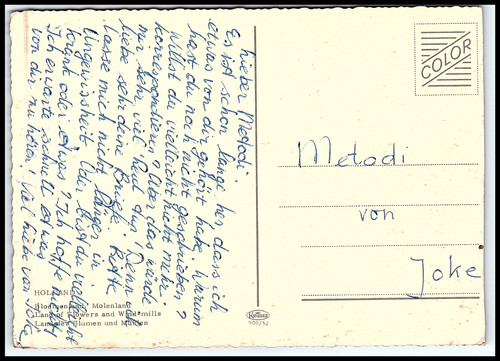 Lieber Metodi.
Es ist schon lange her, dass ich
etwas von dir gehört habe. Warum
hast du noch nicht geschrieben?
Willst du vielleicht nicht mehr
korrespondieren? Über das würde
mir sehr viel Leid tun! Denn ich
liebe sehr deine Briefe. Bitte
lasse mich nicht länger in
Ungewissheit. Oder bist du vielleicht
krank oder etwas? Ich hoffe nicht!
Ich erwarte schnell etwas
von dir zu hören! Viel liebe von Joke
COLOR
Metodi
von
Joke
HOLLAND
Bloemen en Molenland
Land of Flowers and Wind-mills
Land der Blumen und Mühlen